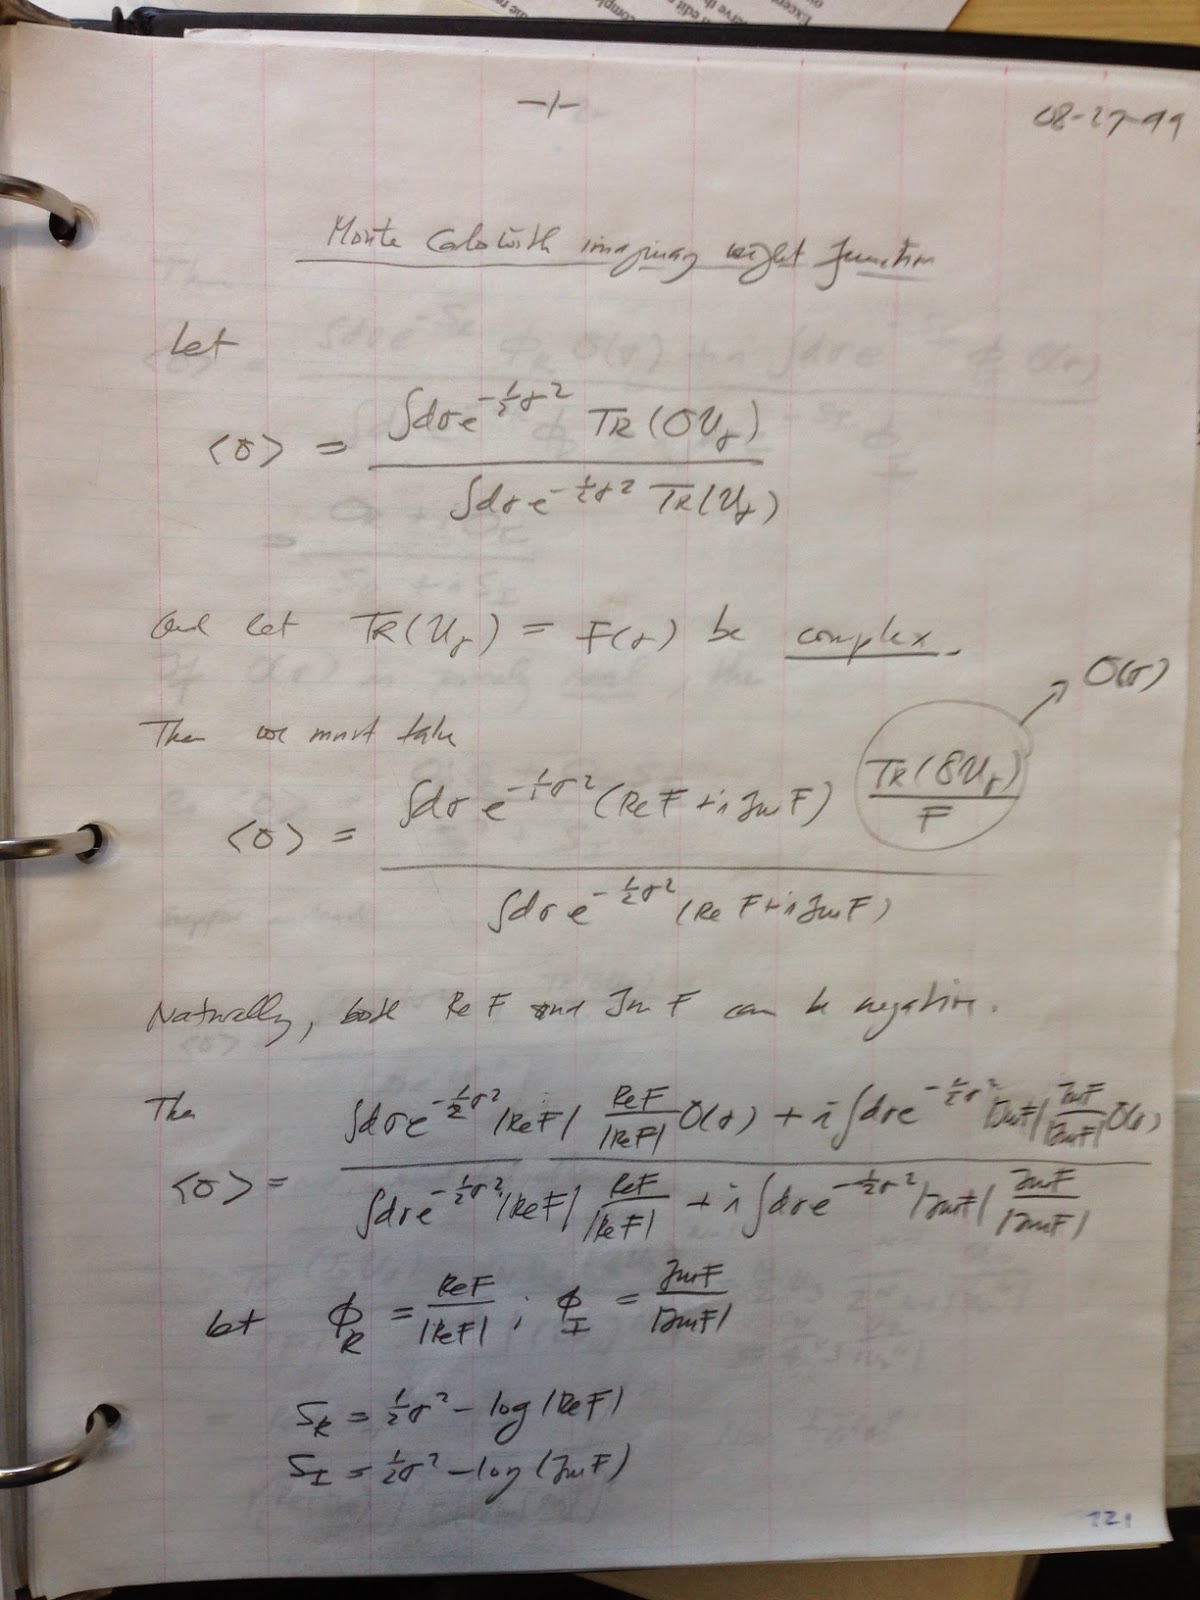 -1-
08-27-99
Monte Carlo with imaginary weight function
Let
<O> = ∫dσe^{-½σ²} TR(OU_σ) / ∫dσe^{-½σ²} TR(U_σ)
and let TR(U_σ) = F(σ) be complex.
O(σ)
Then we must take
<O> = ∫dσ e^{-½σ²} (Re F + i Im F) TR(OU_σ)/F / ∫dσ e^{-½σ²} (Re F + i Im F)
Naturally, both Re F and Im F can be negative.
Then
<O> = ∫dσe^{-½σ²} |ReF| ReF/|ReF| O(σ) + i ∫dσe^{-½σ²} |ImF| ImF/|ImF| O(σ) / ∫dσe^{-½σ²} |ReF| ReF/|ReF| + i ∫dσe^{-½σ²} |ImF| ImF/|ImF|
let ϕ_R = ReF/|ReF| ; ϕ_I = ImF/|ImF|
S_R = ½σ² - log|ReF|
S_I = ½σ² - log|ImF|
121